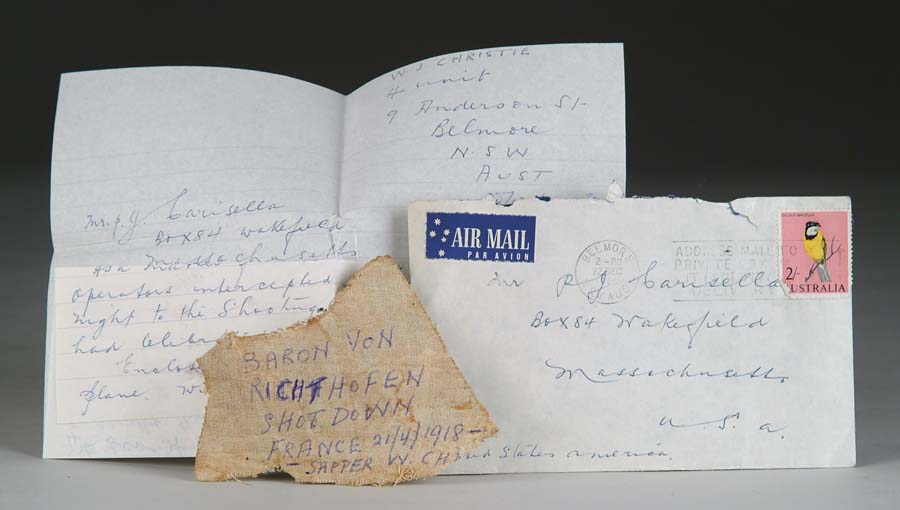 W. J. CHRISTIE
4 unit
9 Anderson St
Belmore
N.S.W
AUST
Mr. P. J. Carisella
BOX 84 Wakefield
Massachusetts
operators intercepted
night to the Shooting
had celebr
Enclos
plane. W
BARON VON
RICHTHOFEN
SHOT DOWN
FRANCE 21/4/1918-
- SAPPER W. CH
AIR MAIL
PAR AVION
BELMORE
2-PM
AUST
PRIVATE
GOLDEN WHISTLER
2/-
AUSTRALIA
Mr P J Carisella
BOX 84 Wakefield
Massachusetts
U.S.a.
States America.